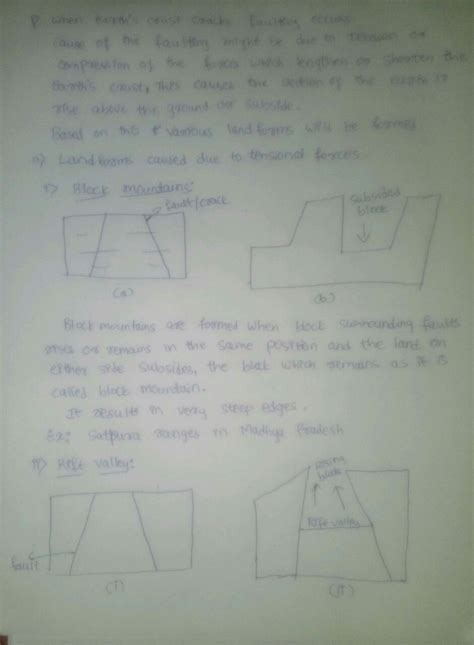 P when Earth's crust cracks faulting occurs.
cause of the faulting might be due to tension or
compression of the forces which lengthen or shorten the
Earth's cause, this causes the section of the earth to
rise above the ground or subside.
Based on this & various landforms will be formed
a) Landforms caused due to tensional forces
i) Block mountains:
fault/crack
subsided
block
(a)
(b)
Block mountains are formed when block surrounding faults
rises or remains in the same position and the land on
either side subsides, the block which remains as it is
called block mountain.
It results in very steep edges.
Ex: Satpura ranges in Madhya Pradesh
ii) Rift valley:
rising
block
Rift valley
fault
(i)
(ii)